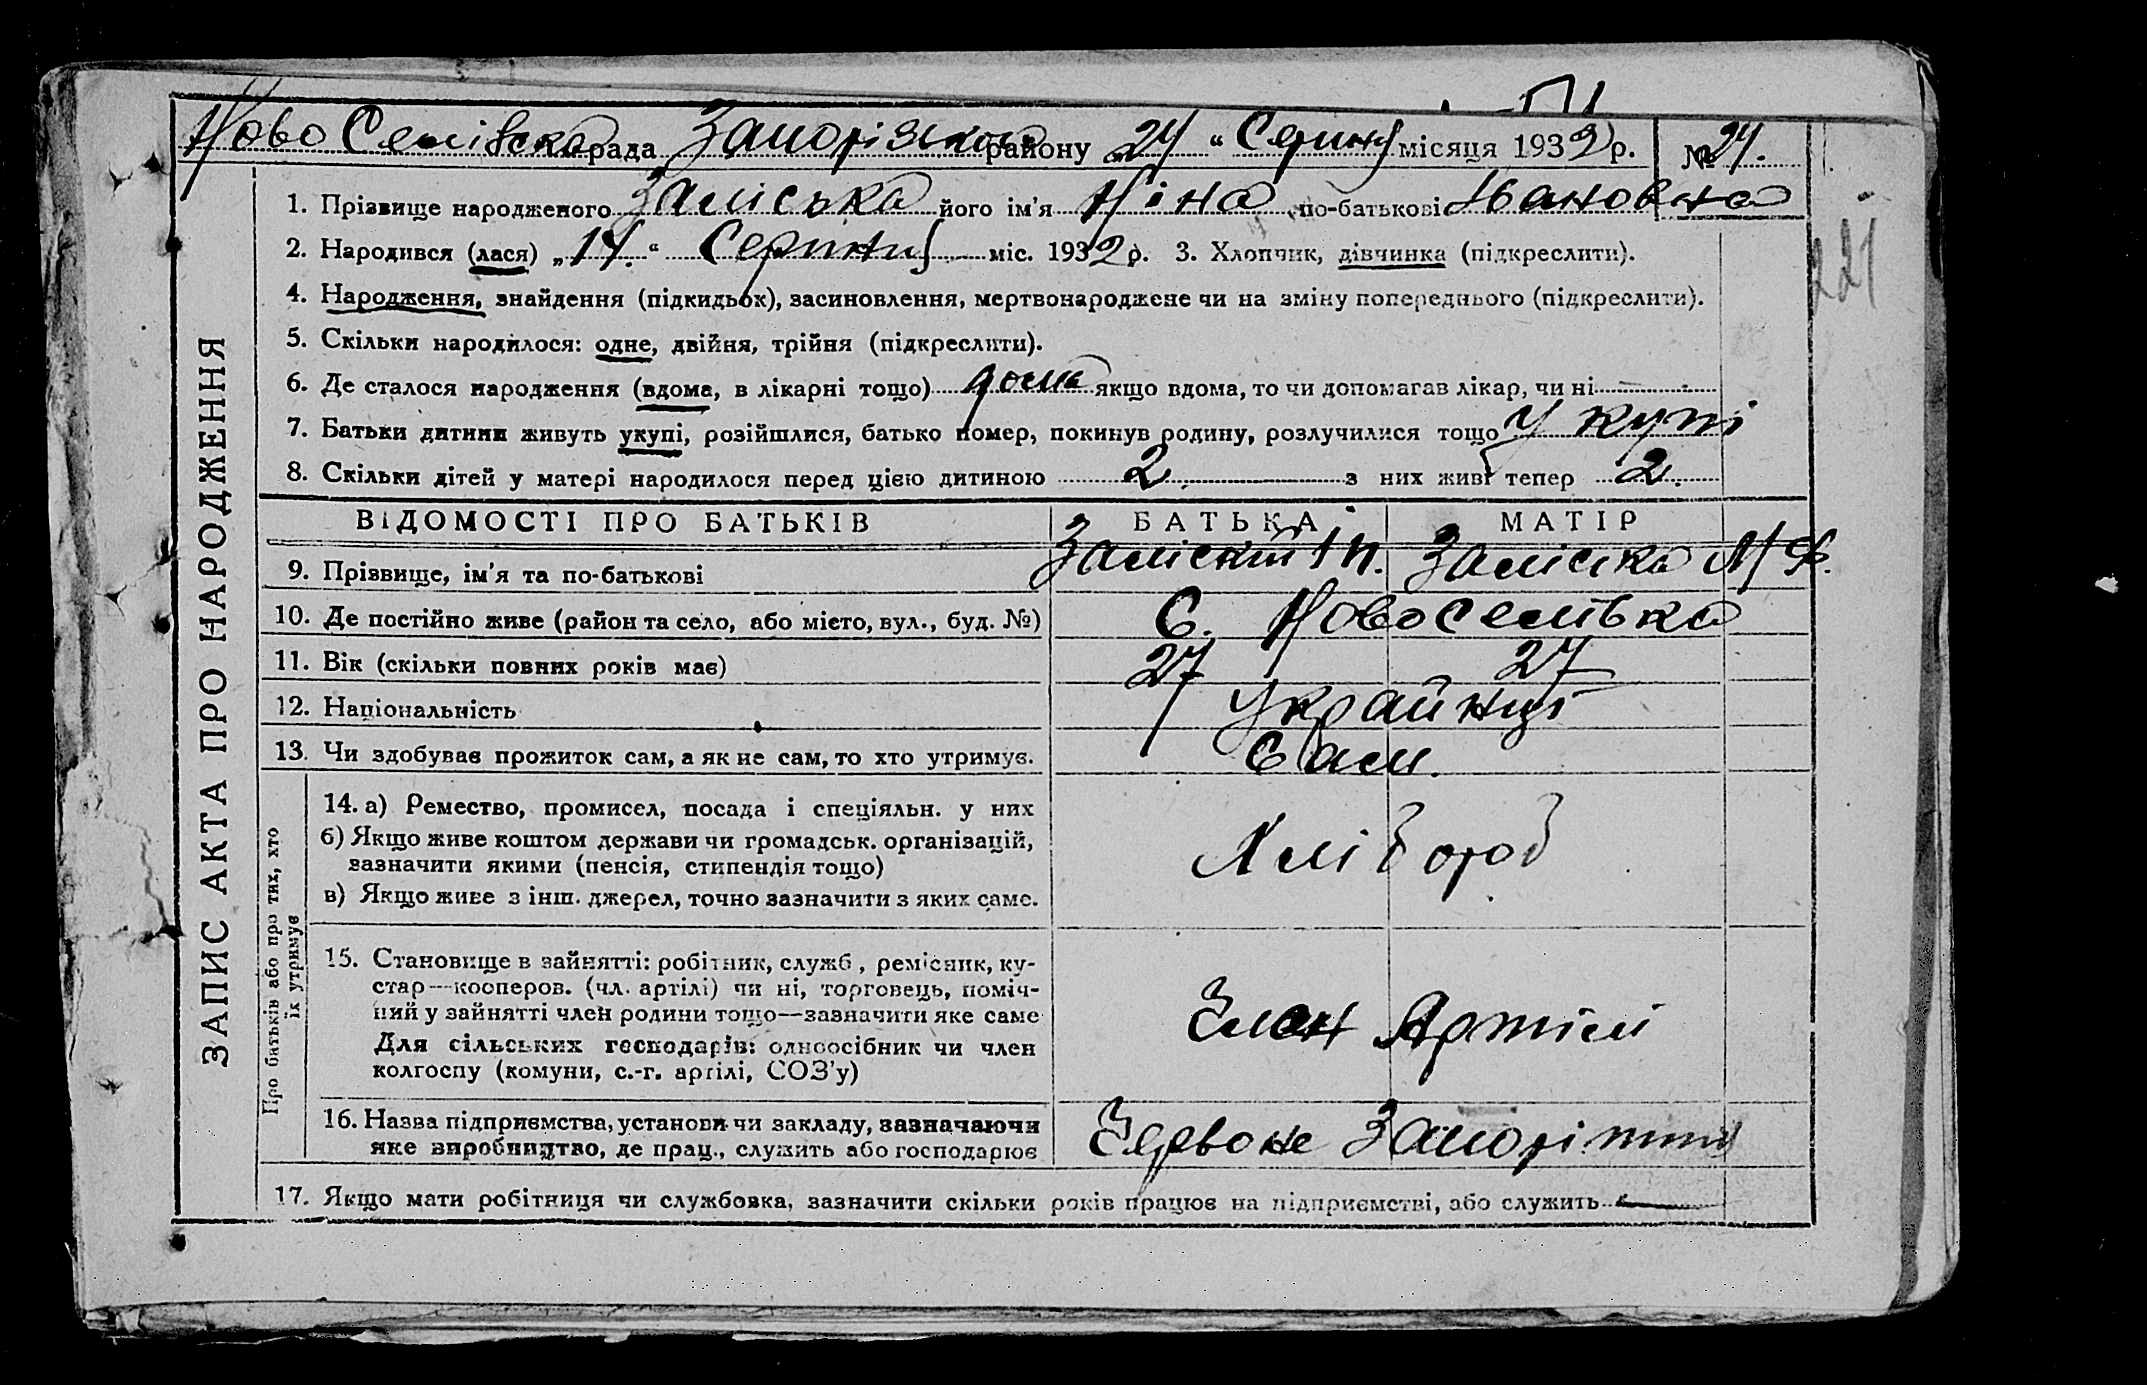 Ново Селівска рада Запорізького району „24“ Серпня місяця 1932 р. № 24.
ЗАПИС АКТА ПРО НАРОДЖЕННЯ
1. Прізвище народженого Заліська його ім'я Ніна по-батькові Ивановна
2. Народився (лася) „14.“ Серпня міс. 1932 р. 3. Хлопчик, дівчинка (підкреслити).
221
4. Народження, знайдення (підкидьок), засиновлення, мертвонароджене чи на зміну попереднього (підкреслити).
5. Скільки народилося: одне, двійня, трійня (підкреслити).
6. Де сталося народження (вдома, в лікарні тощо) дома якщо вдома, то чи допомагав лікар, чи ні —
7. Батьки дитини живуть укупі, розійшлися, батько помер, покинув родину, розлучилися тощо У купі
8. Скільки дітей у матері народилося перед цією дитиною 2. з них живі тепер 2.
ВІДОМОСТІ ПРО БАТЬКІВ БАТЬКА МАТІР
9. Прізвище, ім'я та по-батькові Заліский І П. Заліска М Ф.
10. Де постійно живе (район та село, або місто, вул., буд. №) С. Новоселівка
11. Вік (скільки повних років має) 27 27
12. Національність Українці
13. Чи здобуває прожиток сам, а як не сам, то хто утримує. Сам.
Про батьків або про тих, хто
їх утримує
14. а) Ремество, промисел, посада і спеціяльн. у них
б) Якщо живе коштом держави чи громадськ. організацій,
зазначити якими (пенсія, стипендія тощо)
Хлібороб
в) Якщо живе з інш. джерел, точно зазначити з яких саме.
15. Становище в зайнятті: робітник, служб., ремісник, ку-
стар—кооперов. (чл. артілі) чи ні, торговець, поміч-
ний у зайнятті член родини тощо—зазначити яке саме
Член Артілі
Для сільських господарів: одноосібник чи член
колгоспу (комуни, с.-г. артілі, СОЗ'у)
16. Назва підприємства, установи чи закладу, зазначаючи
яке виробництво, де прац., служить або господарює
Червоне Запоріжжя
17. Якщо мати робітниця чи службовка, зазначити скільки років працює на підприємстві, або служить —